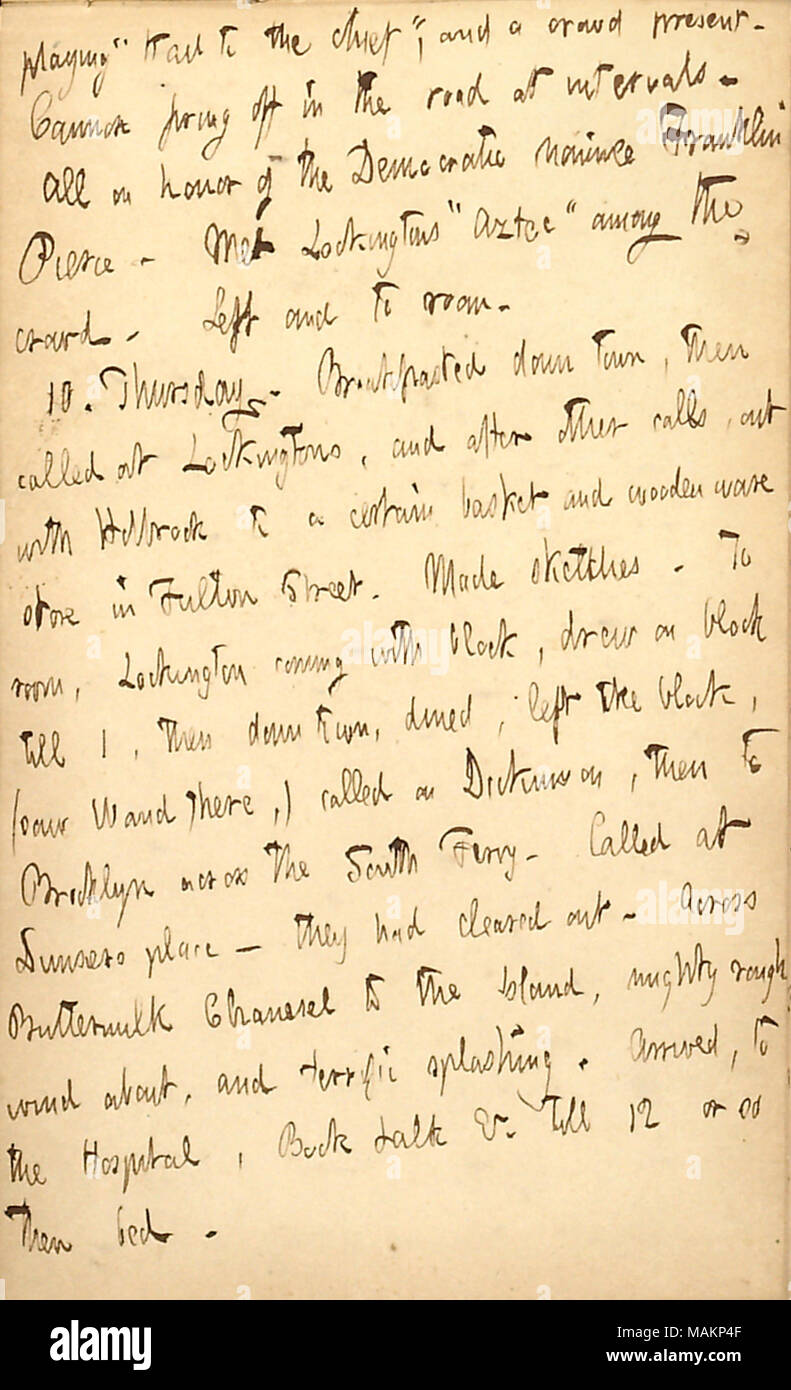 playing "Hail to the chief", and a crowd present.
Cannon firing off in the road at intervals.
All in honor of the Democratic nominee Franklin
Pierce. Met Lockingtons "Aztec" among the
crowd. Left and to room.
10. Thursday. Breakfasted down town, then
called at Lockingtons, and after other calls, out
with Holbrook to a certain basket and wooden ware
store in Fulton Street. Made sketches. To
room, Lockington coming with block, drew on block
till 1, then down town, dined, left the block,
(saw Wand there,) called on Dickinson, then to
Brooklyn across the South Ferry. Called at
Dunsers place — they had cleared out. Across
Buttermilk Channel to the Island, mighty rough
wind about, and terrific splashing. Arrived, to
the Hospital, Book talk &c. till 12 or so
then bed.
alamy
Image ID: MAKP4F
www.alamy.com